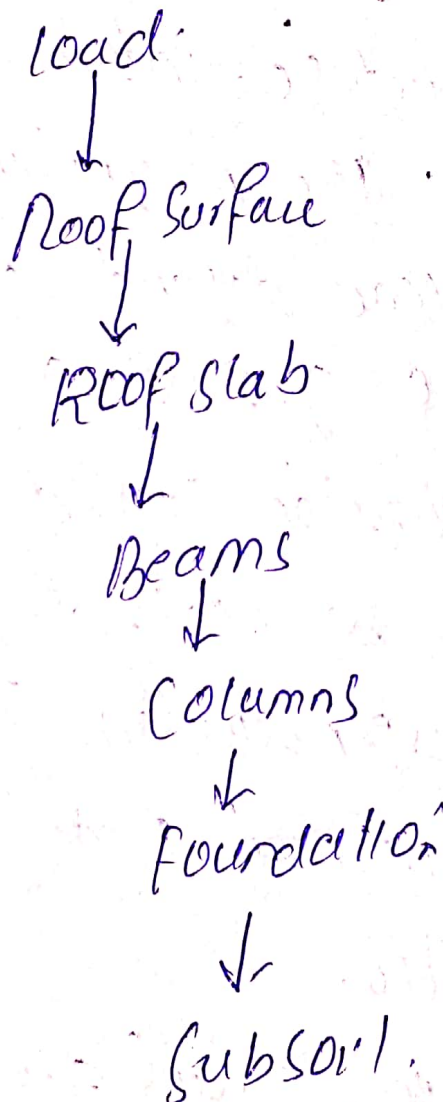 load.
Roof Surface
Roof Slab
Beams
Columns
Foundation
Subsoil.